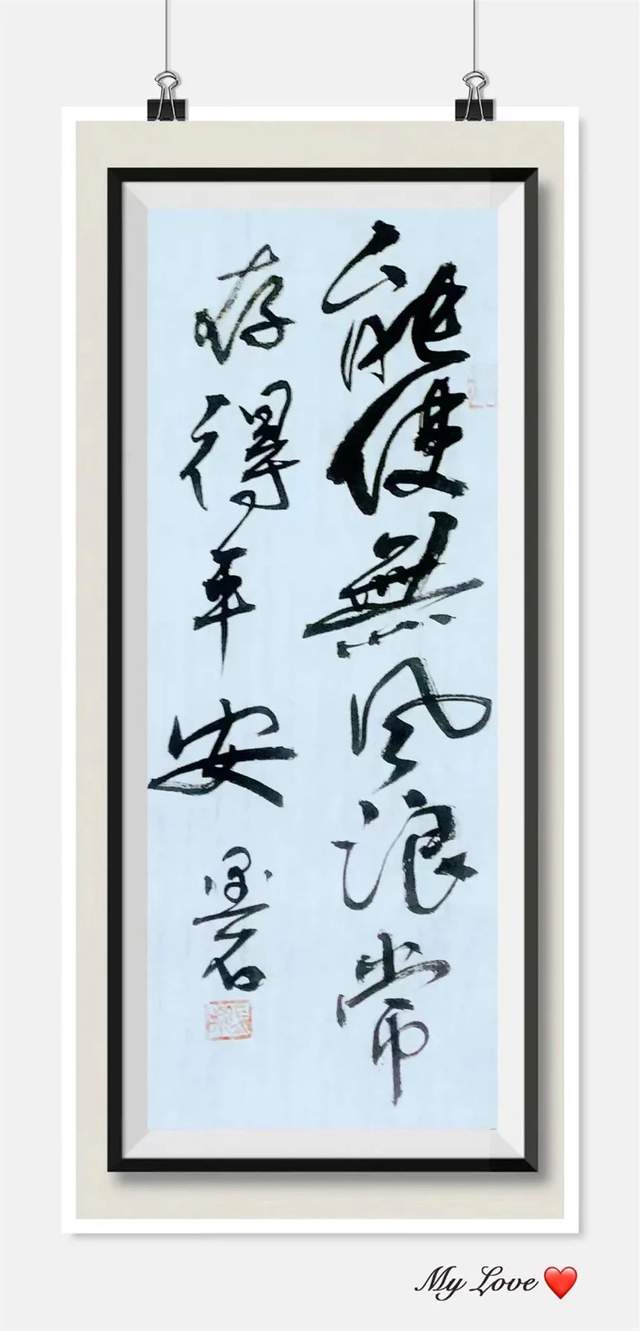 能使無風浪常
存得平安
墨石
My Love❤️